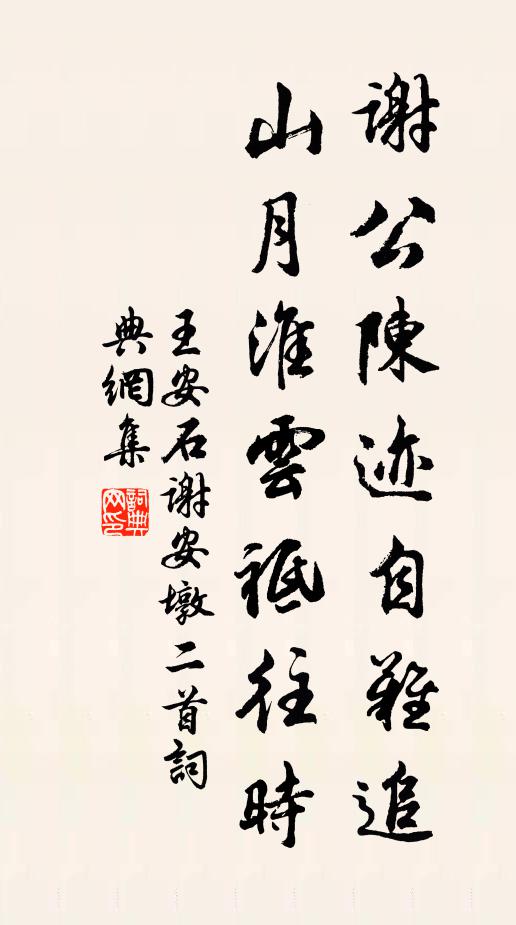 謝公陳迹自難追
山月淮雲祇往時
王安石謝安墩二首詞
典網集
詞典網印